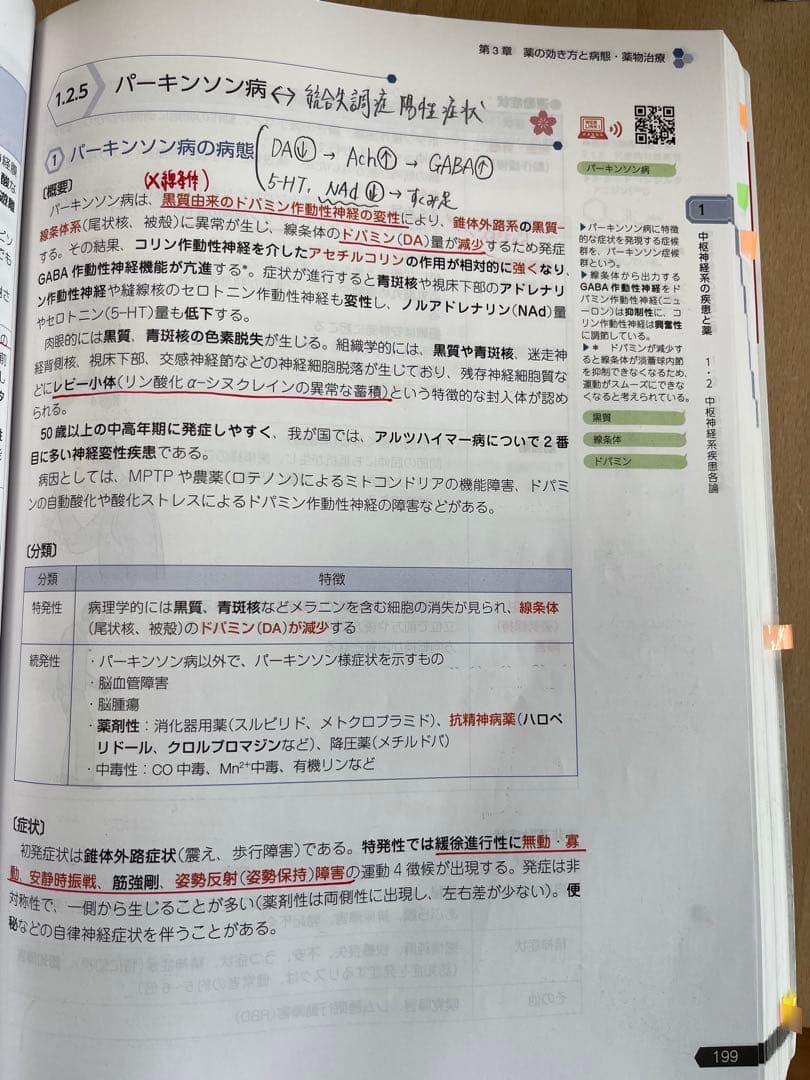 第3章 薬の効き方と病態・薬物治療
1.2.5 パーキンソン病 ↔ 統合失調症 陽性症状
WEB LINK!
① パーキンソン病の病態
DA↓ → Ach↑ → GABA↑
5-HT, NAd↓ → すくみ足
〔概要〕
パーキンソン病は、黒質由来のドパミン作動性神経の変性により、錐体外路系の黒質-
線条体系(尾状核、被殻)に異常が生じ、線条体のドパミン(DA)量が減少するため発症
する。その結果、コリン作動性神経を介したアセチルコリンの作用が相対的に強くなり、
GABA作動性神経機能が亢進する*。症状が進行すると青斑核や視床下部のアドレナリ
ン作動性神経や縫線核のセロトニン作動性神経も変性し、ノルアドレナリン(NAd)量
やセロトニン(5-HT)量も低下する。
肉眼的には黒質、青斑核の色素脱失が生じる。組織学的には、黒質や青斑核、迷走神
経背側核、視床下部、交感神経節などの神経細胞脱落が生じており、残存神経細胞質な
どにレビー小体(リン酸化α-シヌクレインの異常な蓄積)という特徴的な封入体が認め
られる。
50歳以上の中高年期に発症しやすく、我が国では、アルツハイマー病についで2番
目に多い神経変性疾患である。
病因としては、MPTPや農薬(ロテノン)によるミトコンドリアの機能障害、ドパミ
ンの自動酸化や酸化ストレスによるドパミン作動性神経の障害などがある。
〔分類〕
分類 特徴
特発性 病理学的には黒質、青斑核などメラニンを含む細胞の消失が見られ、線条体
(尾状核、被殻)のドパミン(DA)が減少する
続発性 ・パーキンソン病以外で、パーキンソン様症状を示すもの
・脳血管障害
・脳腫瘍
・薬剤性:消化器用薬(スルピリド、メトクロプラミド)、抗精神病薬(ハロペ
リドール、クロルプロマジンなど)、降圧薬(メチルドパ)
・中毒性:CO中毒、Mn²⁺中毒、有機リンなど
〔症状〕
初発症状は錐体外路症状(震え、歩行障害)である。特発性では緩徐進行性に無動・寡
動、安静時振戦、筋強剛、姿勢反射(姿勢保持)障害の運動4徴候が出現する。発症は非
対称性で、一側から生じることが多い(薬剤性は両側性に出現し、左右差が少ない)。便
秘などの自律神経症状を伴うことがある。
パーキンソン病
▶パーキンソン病に特徴
的な症状を発現する症候
群を、パーキンソン症候
群という。
▶線条体から出力する
GABA作動性神経をド
パミン作動性神経(ニュ
ーロン)は抑制性に、コ
リン作動性神経は興奮性
に調節している。
▶* ドパミンが減少す
ると線条体が淡蒼球内節
を抑制できなくなるため、
運動がスムーズにできな
くなると考えられている。
黒質
線条体
ドパミン
1
中枢神経系の疾患と薬
1・2 中枢神経系疾患各論
199